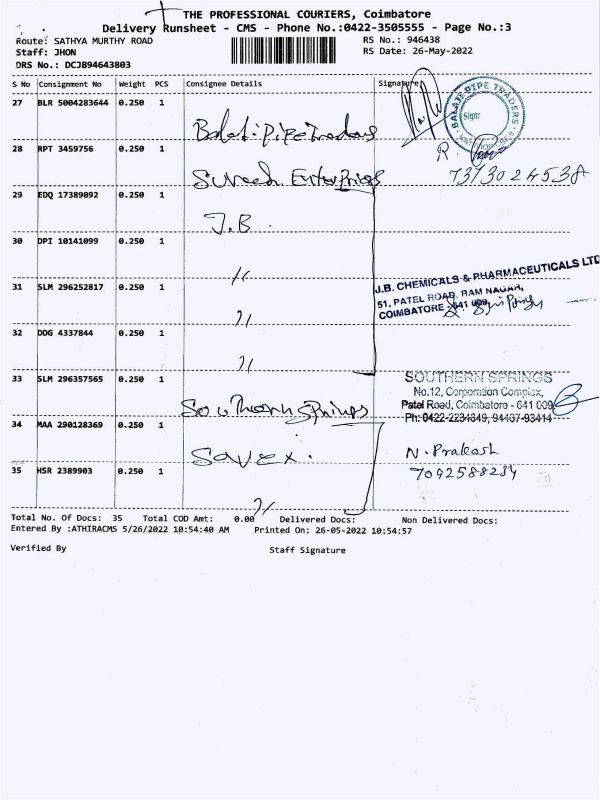 THE PROFESSIONAL COURIERS, Coimbatore
Delivery Runsheet - CMS - Phone No.:0422-3505555 - Page No.:3
Route: SATHYA MURTHY ROAD RS No.: 946438
Staff: JHON RS Date: 26-May-2022
DRS No.: DCJB94643803
S No Consignment No Weight PCS Consignee Details Signature
27 BLR 5004283644 0.250 1 Balaji Pipe Traders
BALAJI PIPE TRADERS
Sign:
28 RPT 3459756 0.250 1 Suresh Enterprises
R.
7373024538
29 EDQ 17389092 0.250 1 J.B.
30 DPI 10141099 0.250 1 //
31 SLM 296252817 0.250 1 //
J.B. CHEMICALS & PHARMACEUTICALS LTD
51, PATEL ROAD, RAM NAGAR,
COIMBATORE - 641 009,
32 DDG 4337844 0.250 1 //
33 SLM 296357565 0.250 1 Southern Springs
SOUTHERN SPRINGS
No.12, Corporation Complex,
Patel Road, Coimbatore - 641 009
Ph: 0422-2234849, 94437-93414
34 MAA 290128369 0.250 1 Savex.
N. Prakash
7092588284
35 HSR 2389903 0.250 1 //
Total No. Of Docs: 35 Total COD Amt: 0.00 Delivered Docs: Non Delivered Docs:
Entered By :ATHIRACMS 5/26/2022 10:54:40 AM Printed On: 26-05-2022 10:54:57
Verified By Staff Signature